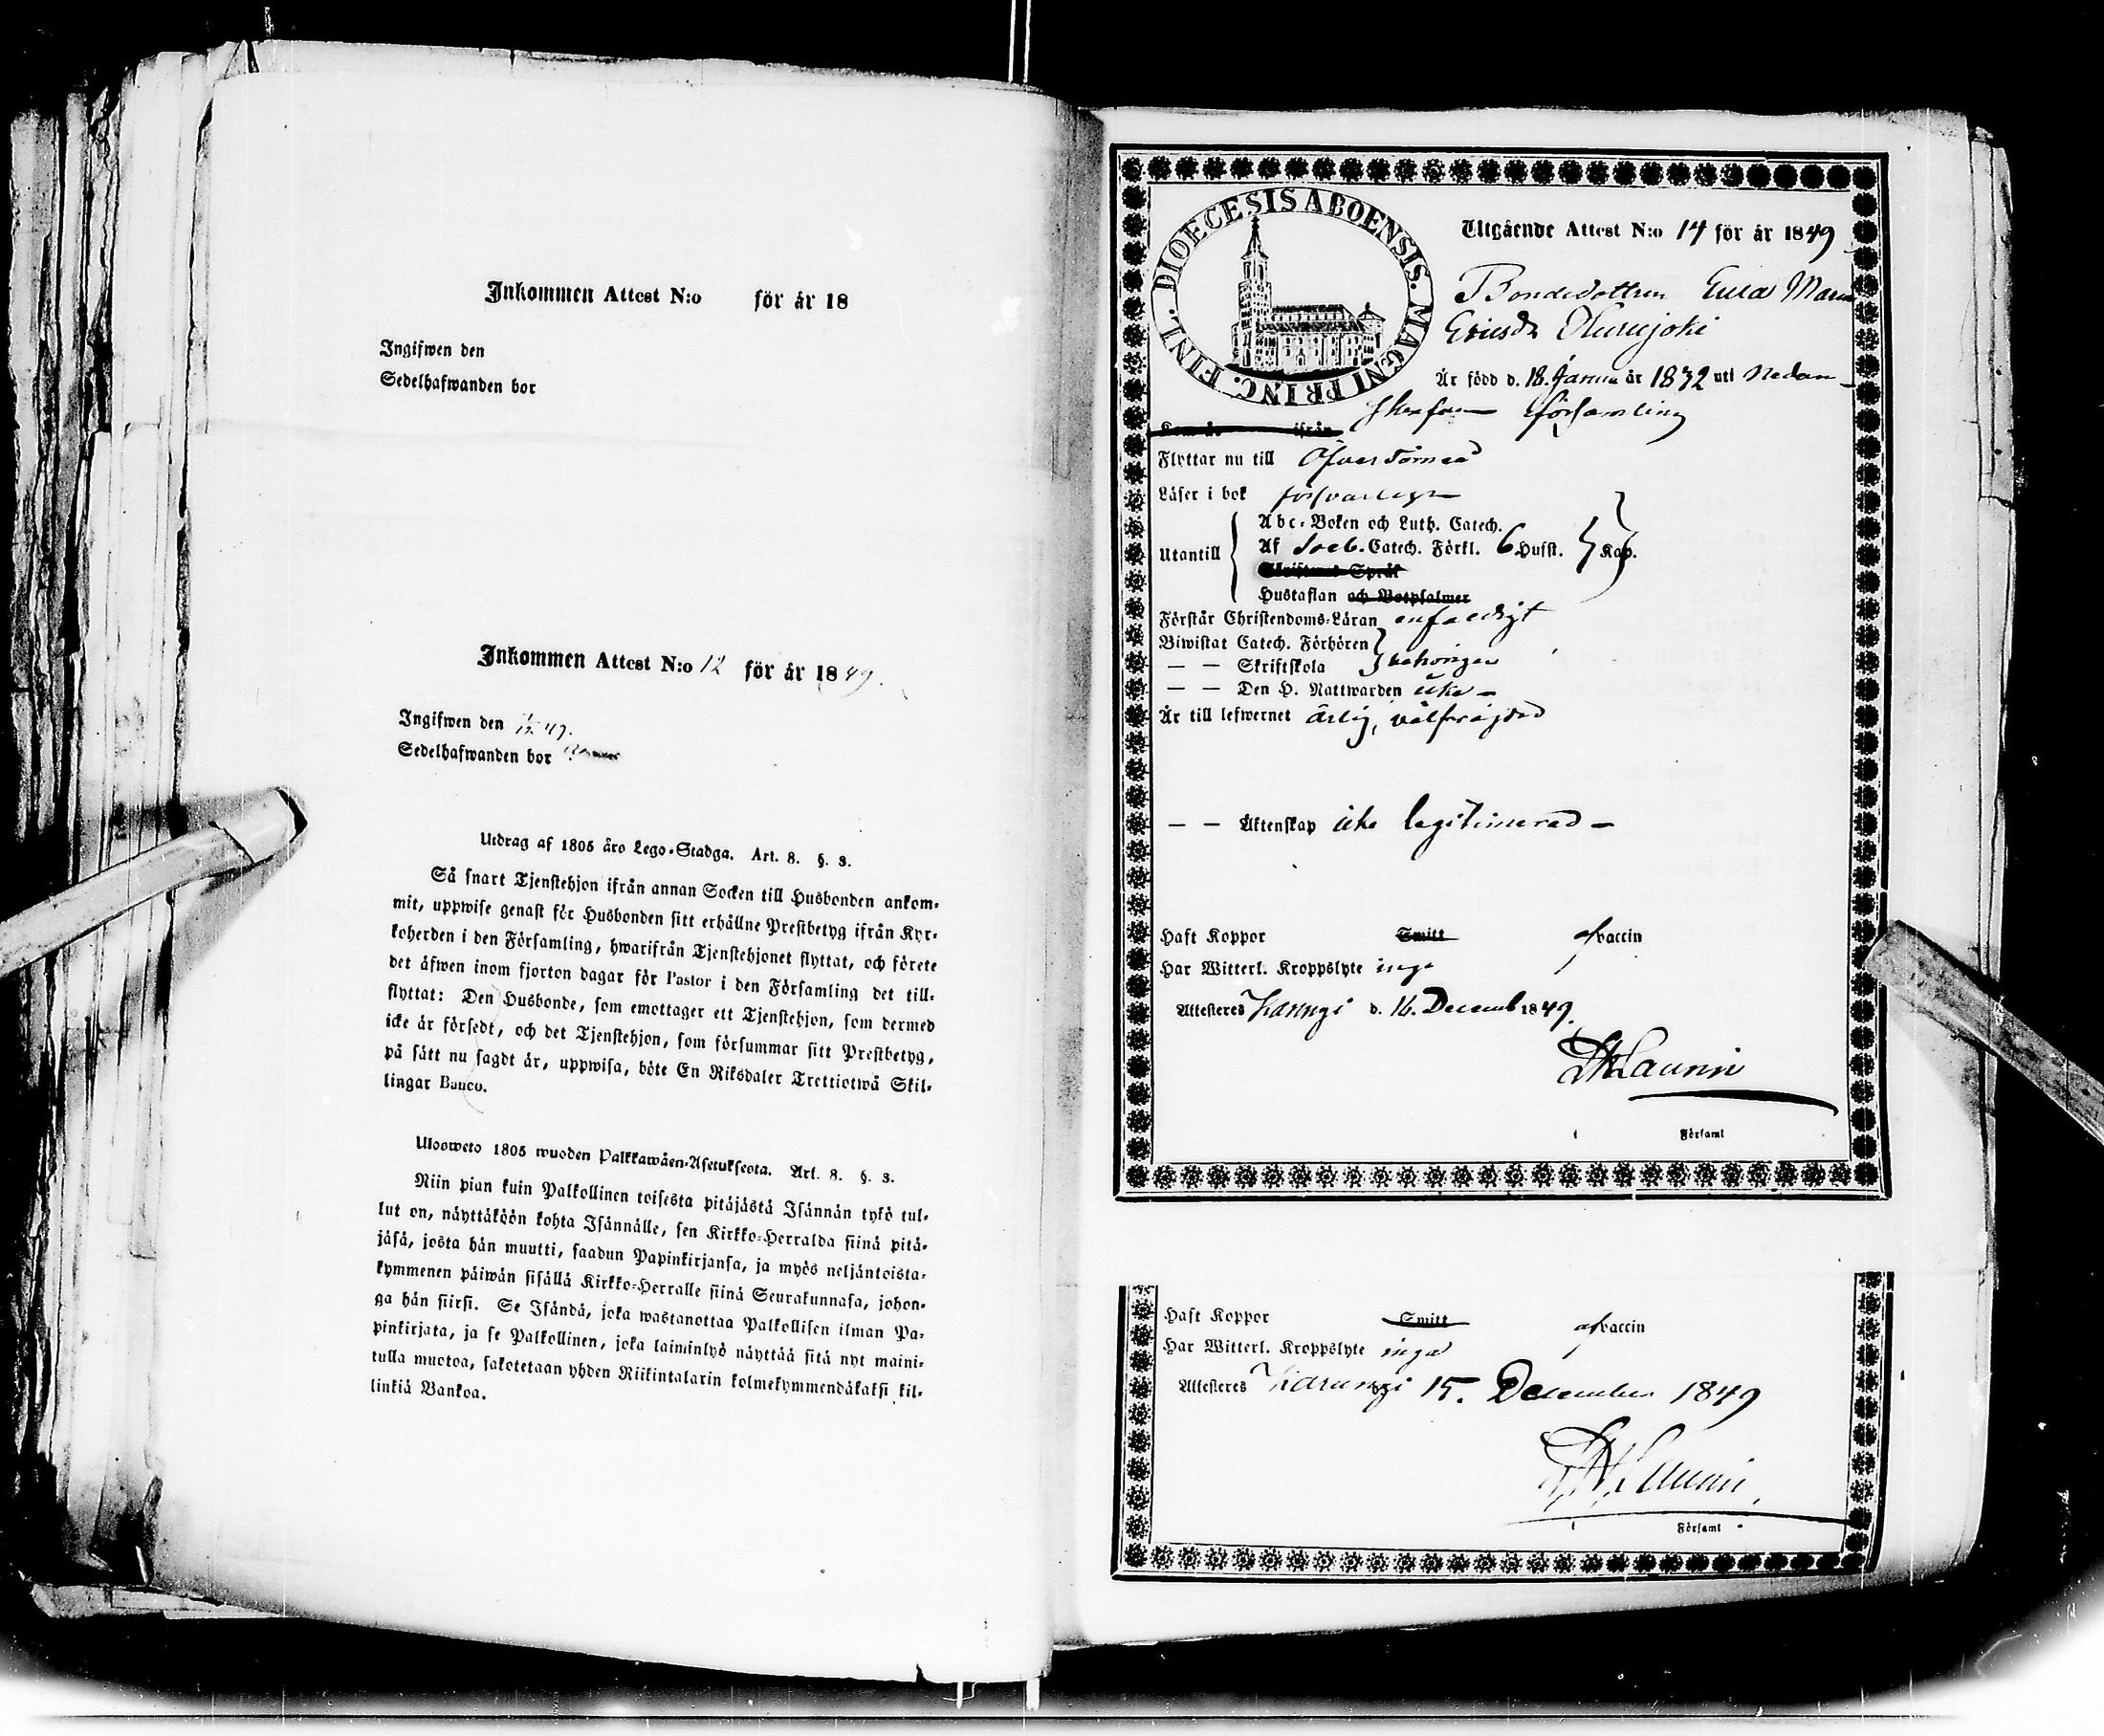 Inkommen Attest N:o för år 18
Ingifwen den
Sedelhafwanden bor
Inkommen Attest N:o 12 för år 1849.
Ingifwen den 49.
Sedelhafwanden bor
Utdrag af 1805 åro Lego-Stadga. Art. 8. §. 3.
Så snart Tjenstehjon ifrån annan Socken till Husbonden ankom-
mit, uppwise genast för Husbonden sitt erhållne Prestbetyg ifrån Kyr-
koherden i den Församling, hwarifrån Tjenstehjonet flyttat, och förete
det åfwen inom fjorton dagar för Pastor i den Församling det till-
flyttat: Den Husbonde, som emottager ett Tjenstehjon, som dermed
icke är försedt, och det Tjenstehjon, som försummar sitt Prestbetyg,
på sätt nu sagdt är, uppwisa, böte En Riksdaler Trettiotwå Skil-
lingar Banco.
Ulosweto 1805 wuoden Palkkawäen-Asetuksesta. Art. 8. §. 3.
Niin pian kuin Palkollinen toisesta pitäjästä Isännän tykö tul-
lut on, näyttäköön kohta Isännälle, sen Kirkko-Herralda siinä pitä-
jäsä, josta hän muutti, saadun Papinkirjansa, ja myös neljäntoista-
kymmenen päiwän sisällä Kirkko-Herralle siinä Seurakunnasa, johon-
ga hän siirsi. Se Isändä, joka wastanottaa Palkollisen ilman Pa-
pinkirjata, ja se Palkollinen, joka laiminlyö näyttää sitä nyt maini-
tulla muotoa, sakotetaan yhden Riikintalarin kolmekymmendäkaksi kil-
linkiä Bankoa.
DIOECESIS ABOENSIS. MAGNI PRINC. FINL.
Utgående Attest N:o 14 för år 1849
Bondedottren Eva Maria
Ericsdr Olurujoki
Är född d. 18. Janua år 1832 uti Nedan-
församling
Kom år ifrån
Flyttar nu till Öfver Torneå
Läser i bok försvarligt
Abc-Boken och Luth. Catech.
Utantill Af Sveb. Catech. Förkl. 6 Hufst. Kap.
Skriftenes Språk
Hustaflan och Botpsalmer
Förstår Christendoms-Läran enfaldigt
Biwistat Catech. Förhören
— — Skriftskola behörigen
— — Den H. Nattwarden icke —
Är till lefwernet ärlig, välfräjdad
— — Äktenskap icke legitimerad —
Haft Koppor Smitt af vaccin
Har Witterl. Kroppslyte inga
Attesteres Karungi d. 16. Decemb 1849.
Launi
Församl
Haft Koppor Smitt af vaccin
Har Witterl. Kroppslyte inga
Attesteres Karungi 15. December 1849
Launi
Församl